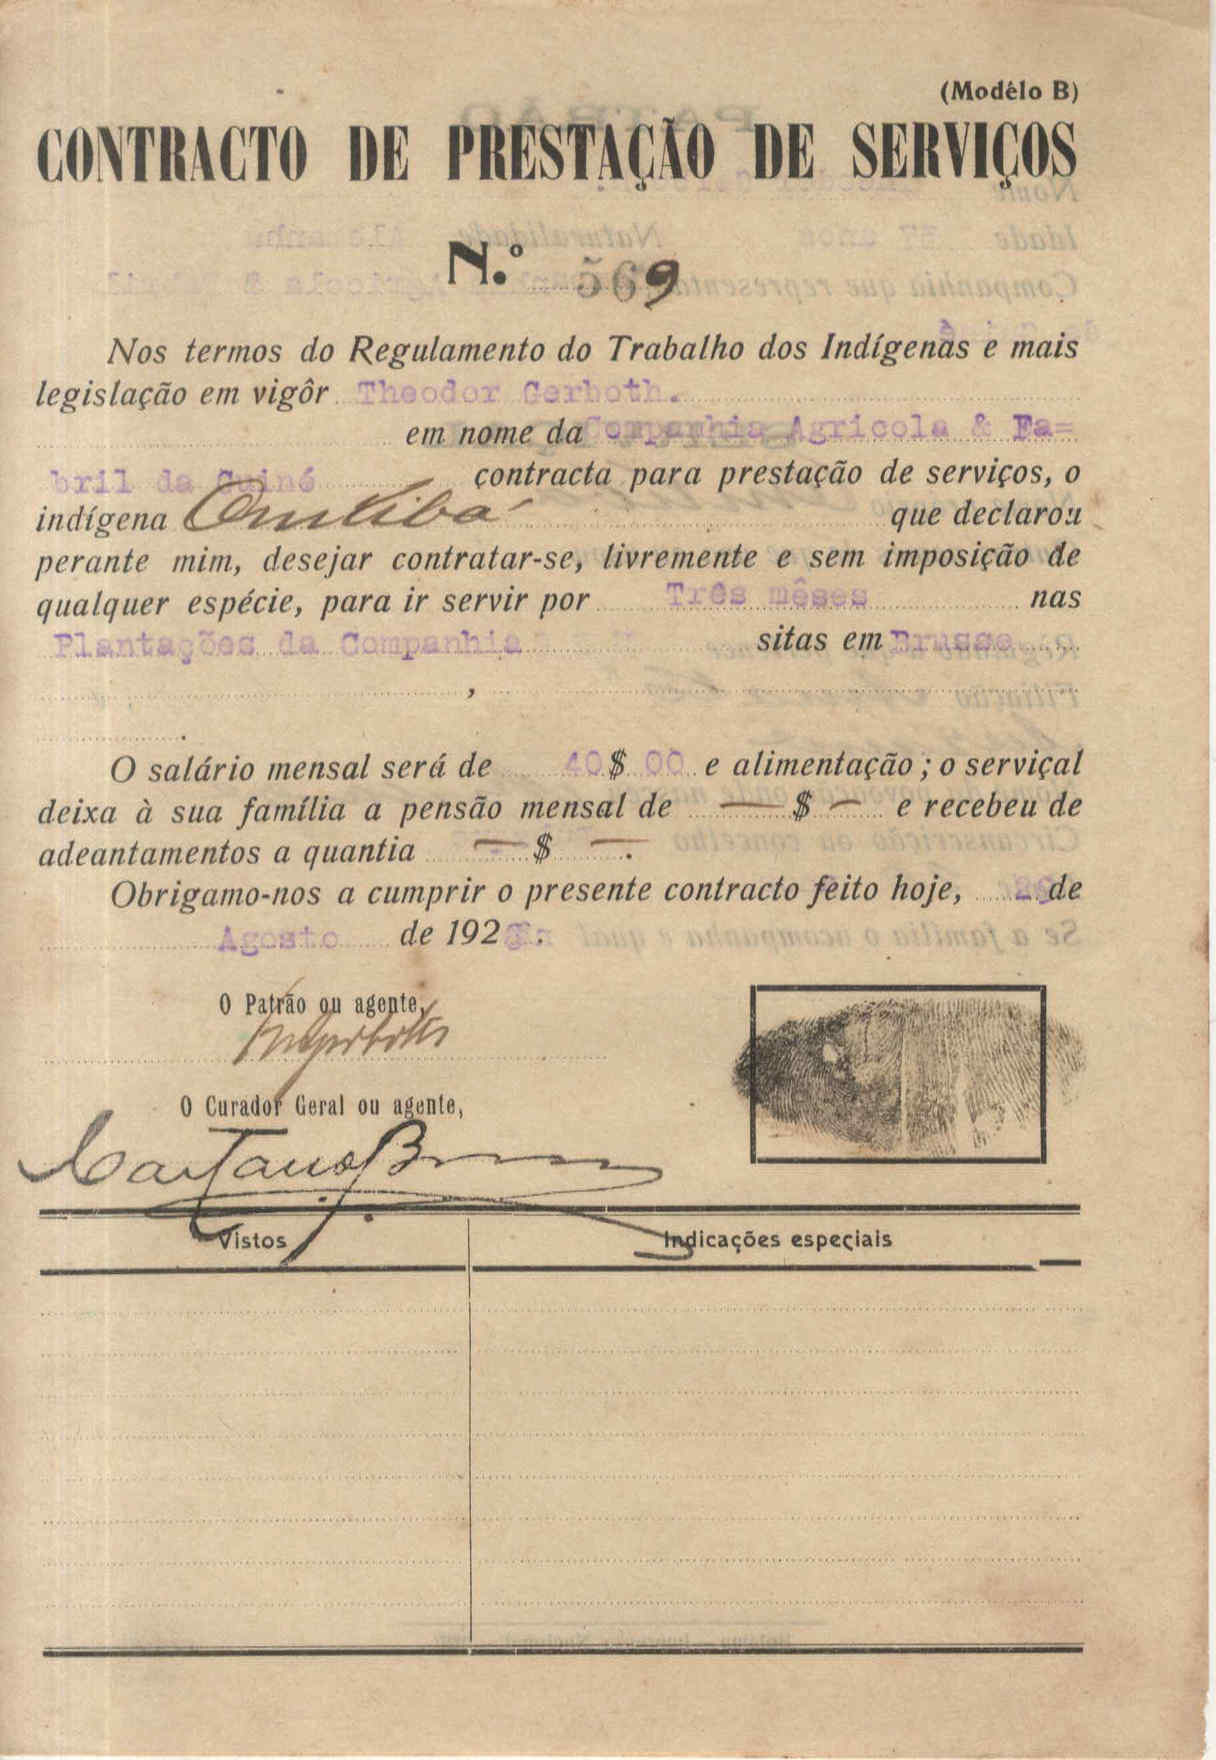 (Modêlo B)
CONTRACTO DE PRESTAÇÃO DE SERVIÇOS
N.º 569
Nos termos do Regulamento do Trabalho dos Indígenas e mais
legislação em vigôr Theodor Gerboth.
em nome da Companhia Agricola & Fa=
bril da Guiné contracta para prestação de serviços, o
indígena que declarou
perante mim, desejar contratar-se, livremente e sem imposição de
qualquer espécie, para ir servir por Três mêses nas
Plantações da Companhia sitas em Brusse
,
.
O salário mensal será de 40$00 e alimentação; o serviçal
deixa à sua família a pensão mensal de —$— e recebeu de
adeantamentos a quantia —$—.
Obrigamo-nos a cumprir o presente contracto feito hoje, de
Agosto de 192 .
O Patrão ou agente,
O Curador Geral ou agente,
Caetano
Vistos Indicações especiais